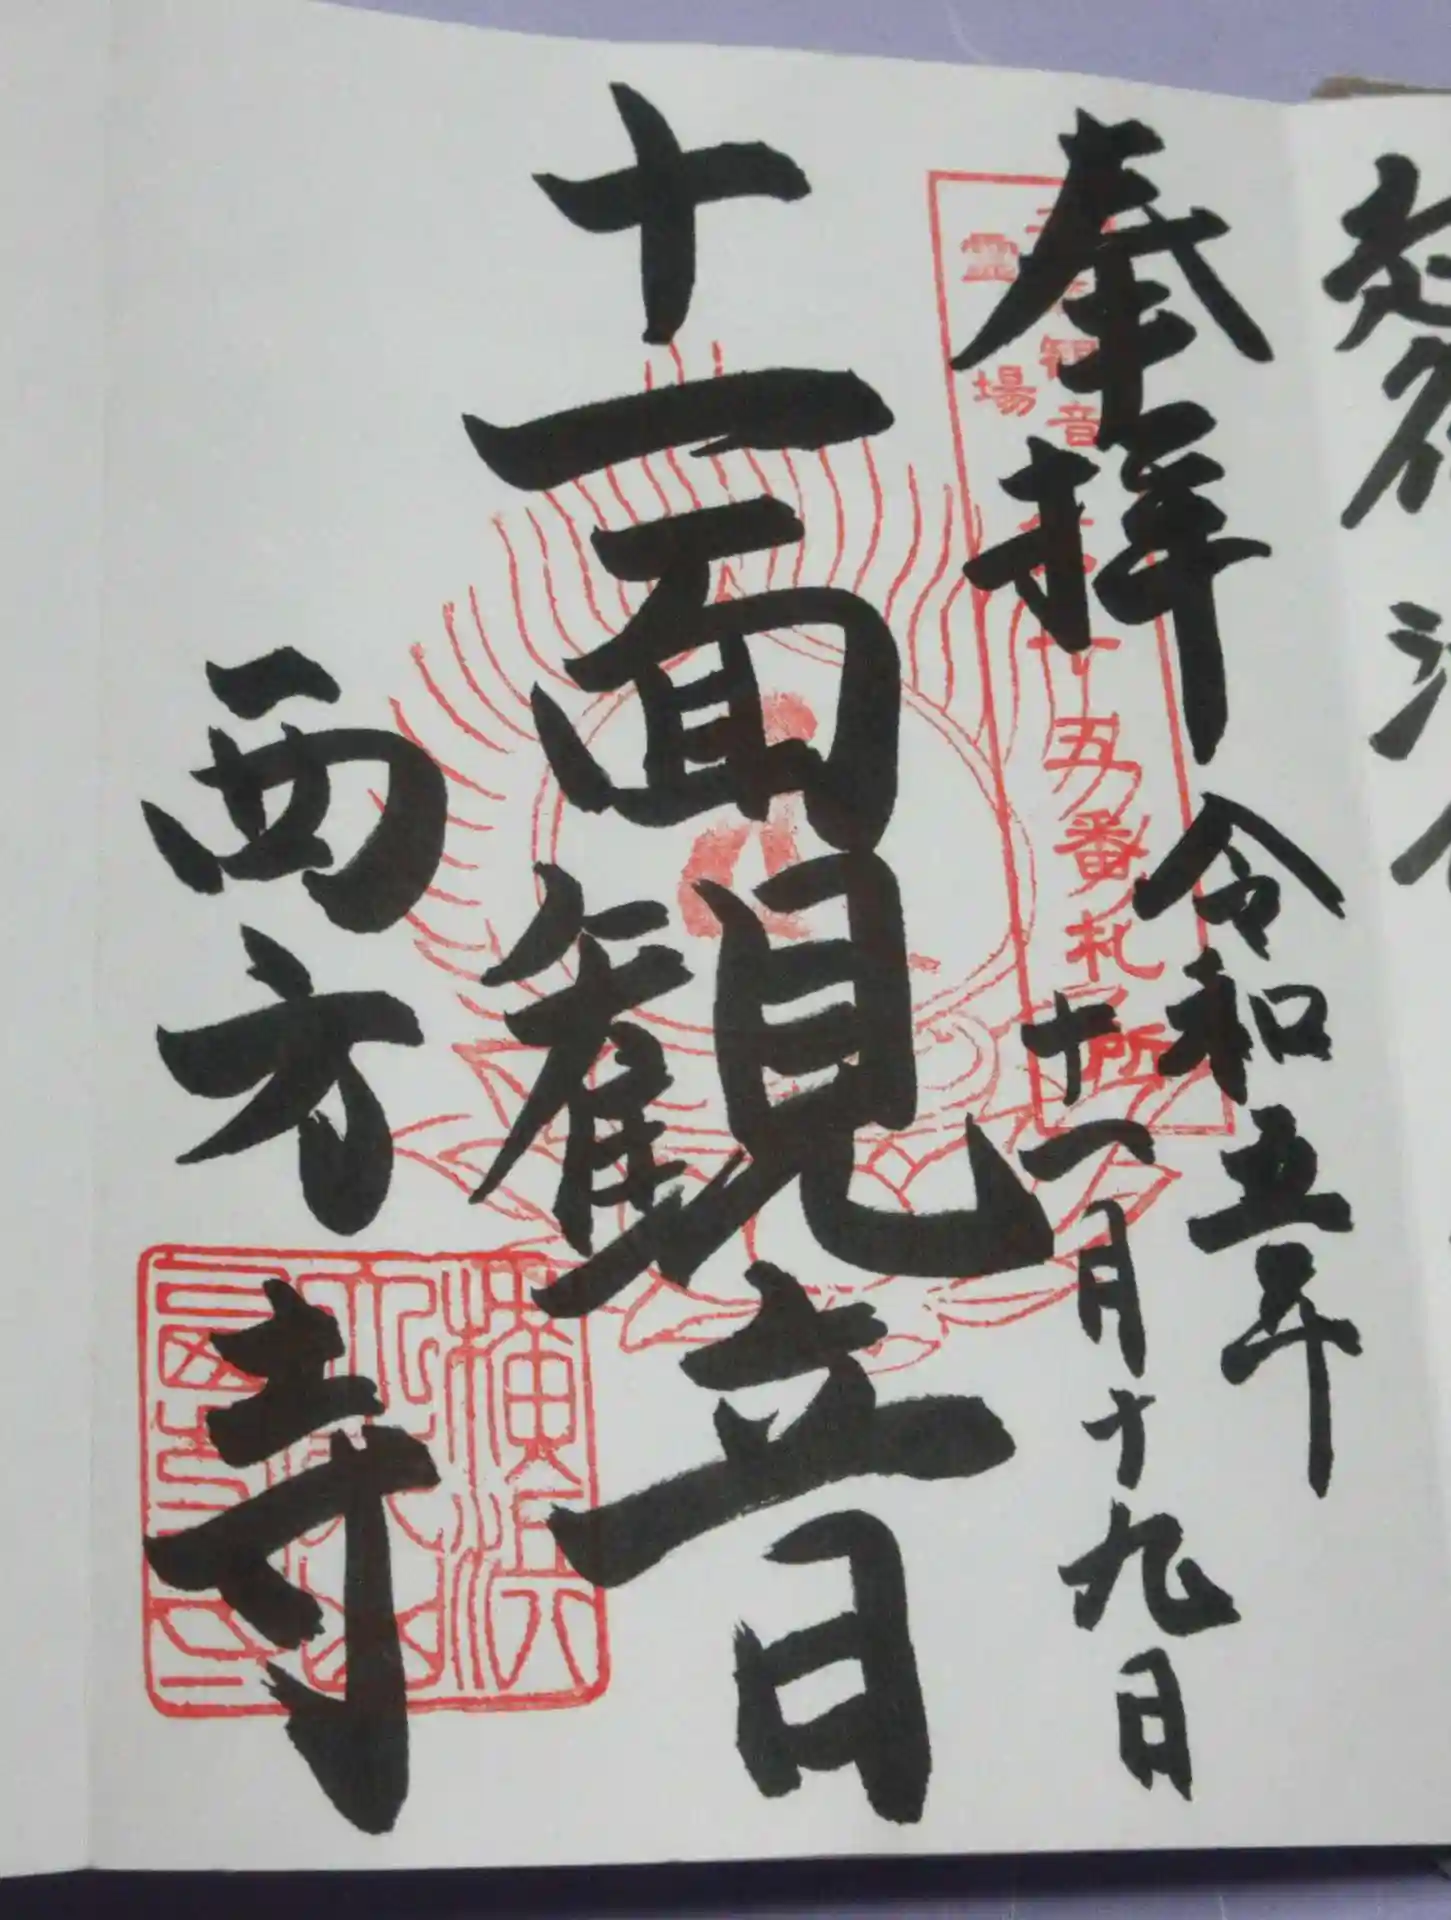 奉拝
令和五年
十一月十九日
十一面観音
西方寺
霊場
観音
十五番札所
横浜